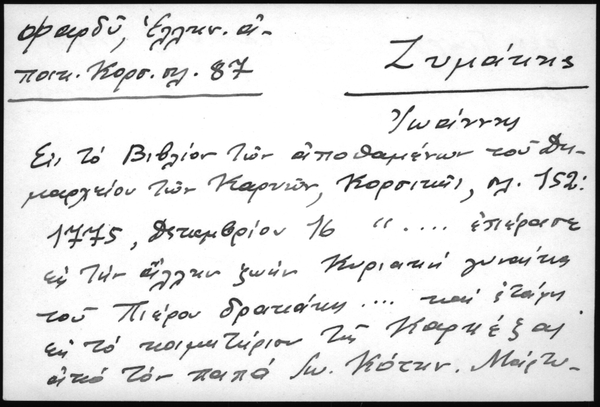 Φαρδῦ, Ἑλλην. ἀ-
ποικ. Κορσ. σλ. 87
Ζυμάκης
Ἰωάννης
Εἰς τό Βιβλίον τῶν ἀποθαμένων τοῦ Δη-
μαρχείου τῶν Καρυῶν, Κορσικῆς, σλ. 152:
1775, Δεκεμβρίου 16 " .... ἐπέρασε
εἰς τήν ἄλλην ζωήν Κυριακή γυναίκα
τοῦ Πιέρου Δρακάκη ... καί ἐτάφη
εἰς τό κοιμητήριον τῆς Καργέζας
ἀπό τόν παπᾶ Ἰω. Κότζην. Μάρτυ-